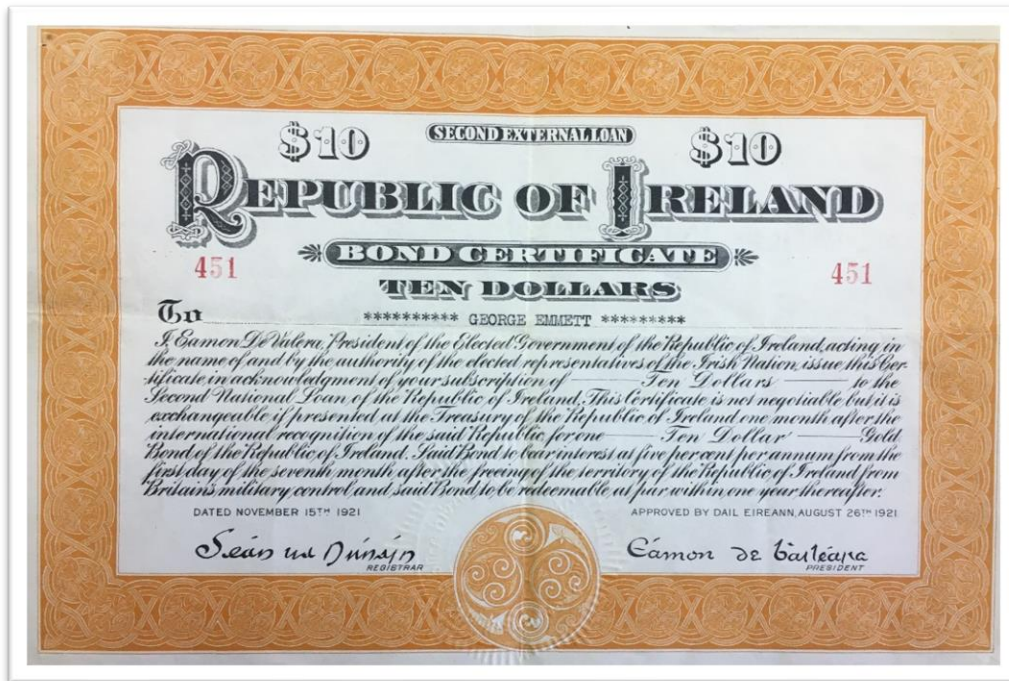 $10 SECOND EXTERNAL LOAN $10
REPUBLIC OF IRELAND
BOND CERTIFICATE
451 451
TEN DOLLARS
To ********** GEORGE EMMETT *********
I, Eamon De Valera, President of the Elected Government of the Republic of Ireland, acting in
the name of and by the authority of the elected representatives of the Irish Nation, issue this Cer-
tificate in acknowledgment of your subscription of Ten Dollars to the
Second National Loan of the Republic of Ireland. This Certificate is not negotiable but it is
exchangeable if presented at the Treasury of the Republic of Ireland one month after the
international recognition of the said Republic for one Ten Dollar Gold
Bond of the Republic of Ireland. Said Bond to bear interest at five per cent per annum from the
first day of the seventh month after the freeing of the territory of the Republic of Ireland from
Britain's military control, and said Bond, to be redeemable at par within one year thereafter.
DATED NOVEMBER 15TH 1921 APPROVED BY DAIL EIREANN, AUGUST 26TH 1921
Seán REGISTRAR
Éamon de PRESIDENT